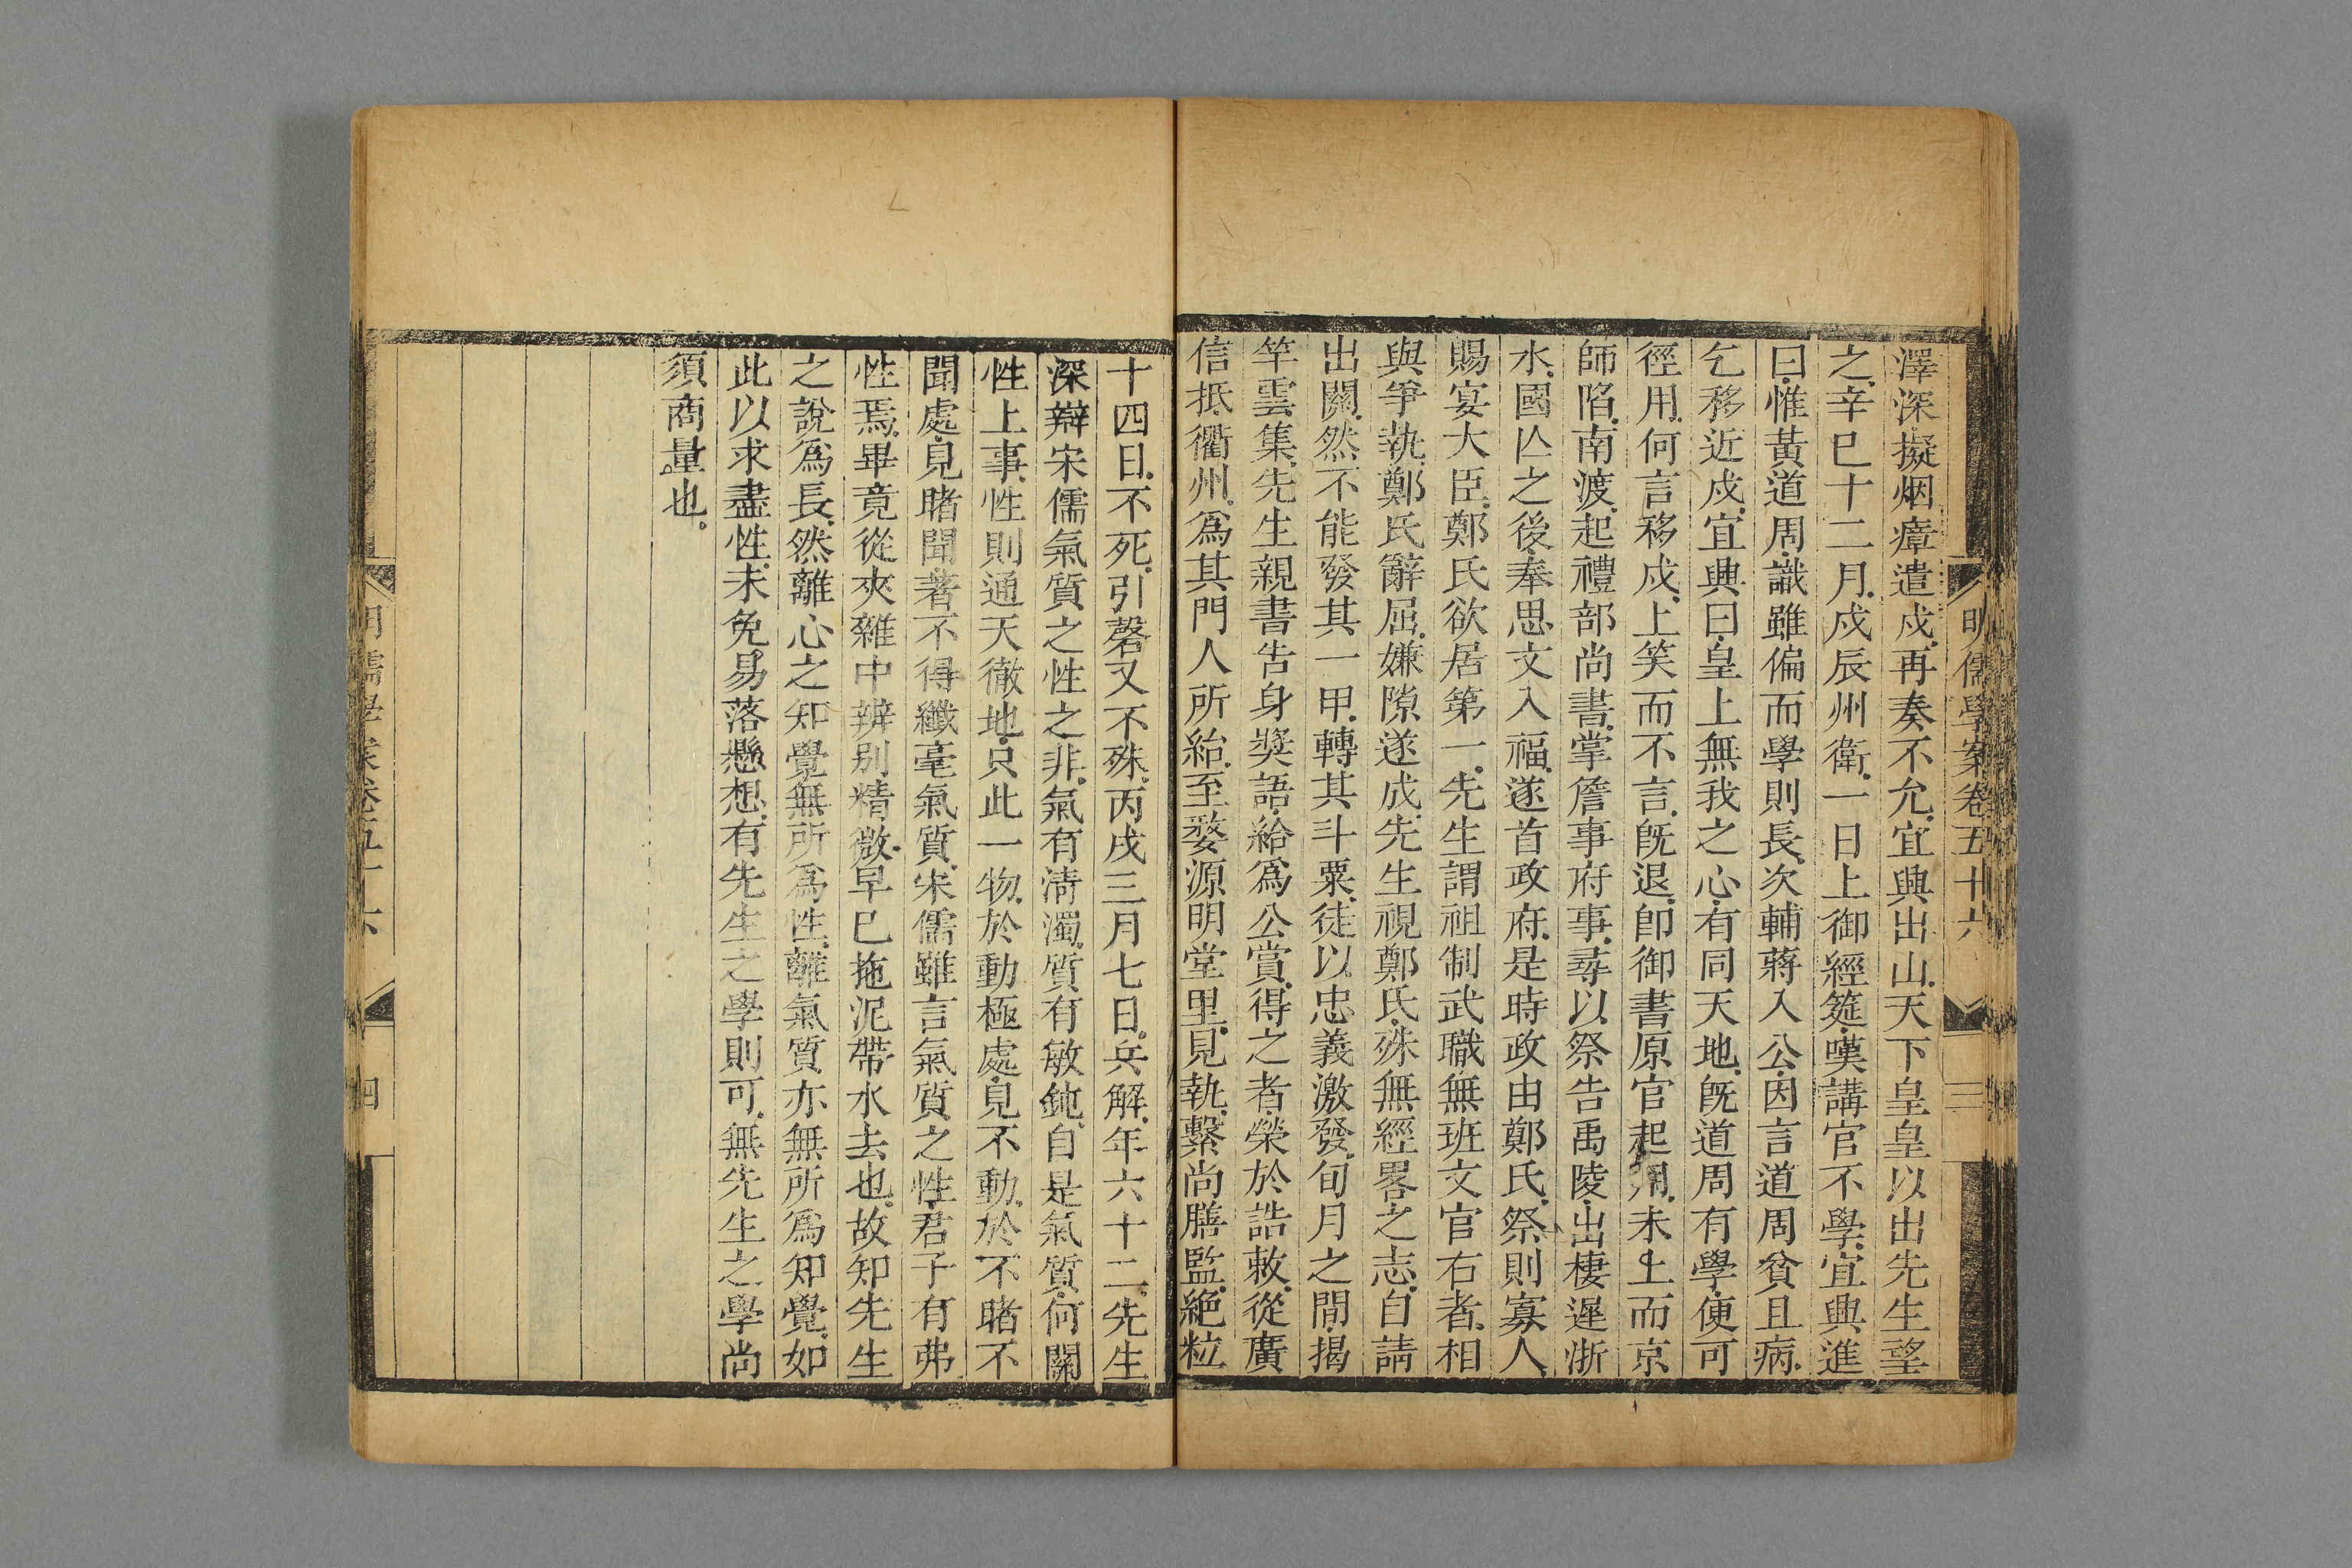 明儒學案卷五十六
三
澤深擬烟瘴遣戍再奏不允宜興出山天下皇皇以出先生望
之辛巳十二月戍辰州衛一日上御經筵嘆講官不學宜興進
曰惟黃道周識雖偏而學則長次輔蔣入公因言道周貧且病
乞移近戍宜興曰皇上無我之心有同天地旣道周有學便可
徑用何言移戍上笑而不言旣退卽御書原官起用未上而京
師陷南渡起禮部尚書掌詹事府事尋以祭告禹陵出棲遲浙
水國亾之後奉思文入福遂首政府是時政由鄭氏祭則寡人
賜宴大臣鄭氏欲居第一先生謂祖制武職無班文官右者相
與爭執鄭氏辭屈嫌隙遂成先生視鄭氏殊無經畧之志自請
出關然不能發其一甲轉其斗粟徒以忠義激發旬月之間揭
竿雲集先生親書告身奬語給爲公賞得之者榮於誥敕從廣
信抵衢州爲其門人所紿至婺源明堂里見執繫尚膳監絶粒
十四日不死引磬又不殊丙戌三月七日兵解年六十二先生
深辯宋儒氣質之性之非氣有淸濁質有敏鈍自是氣質何關
性上事性則通天徹地只此一物於動極處見不動於不睹不
聞處見睹聞著不得纖毫氣質宋儒雖言氣質之性君子有弗
性焉畢竟從夾雜中辨别精微早已拖泥帶水去也故知先生
之說爲長然離心之知覺無所爲性離氣質亦無所爲知覺如
此以求盡性未免易落懸想有先生之學則可無先生之學尚
須商量也
明儒學案卷五十六
四